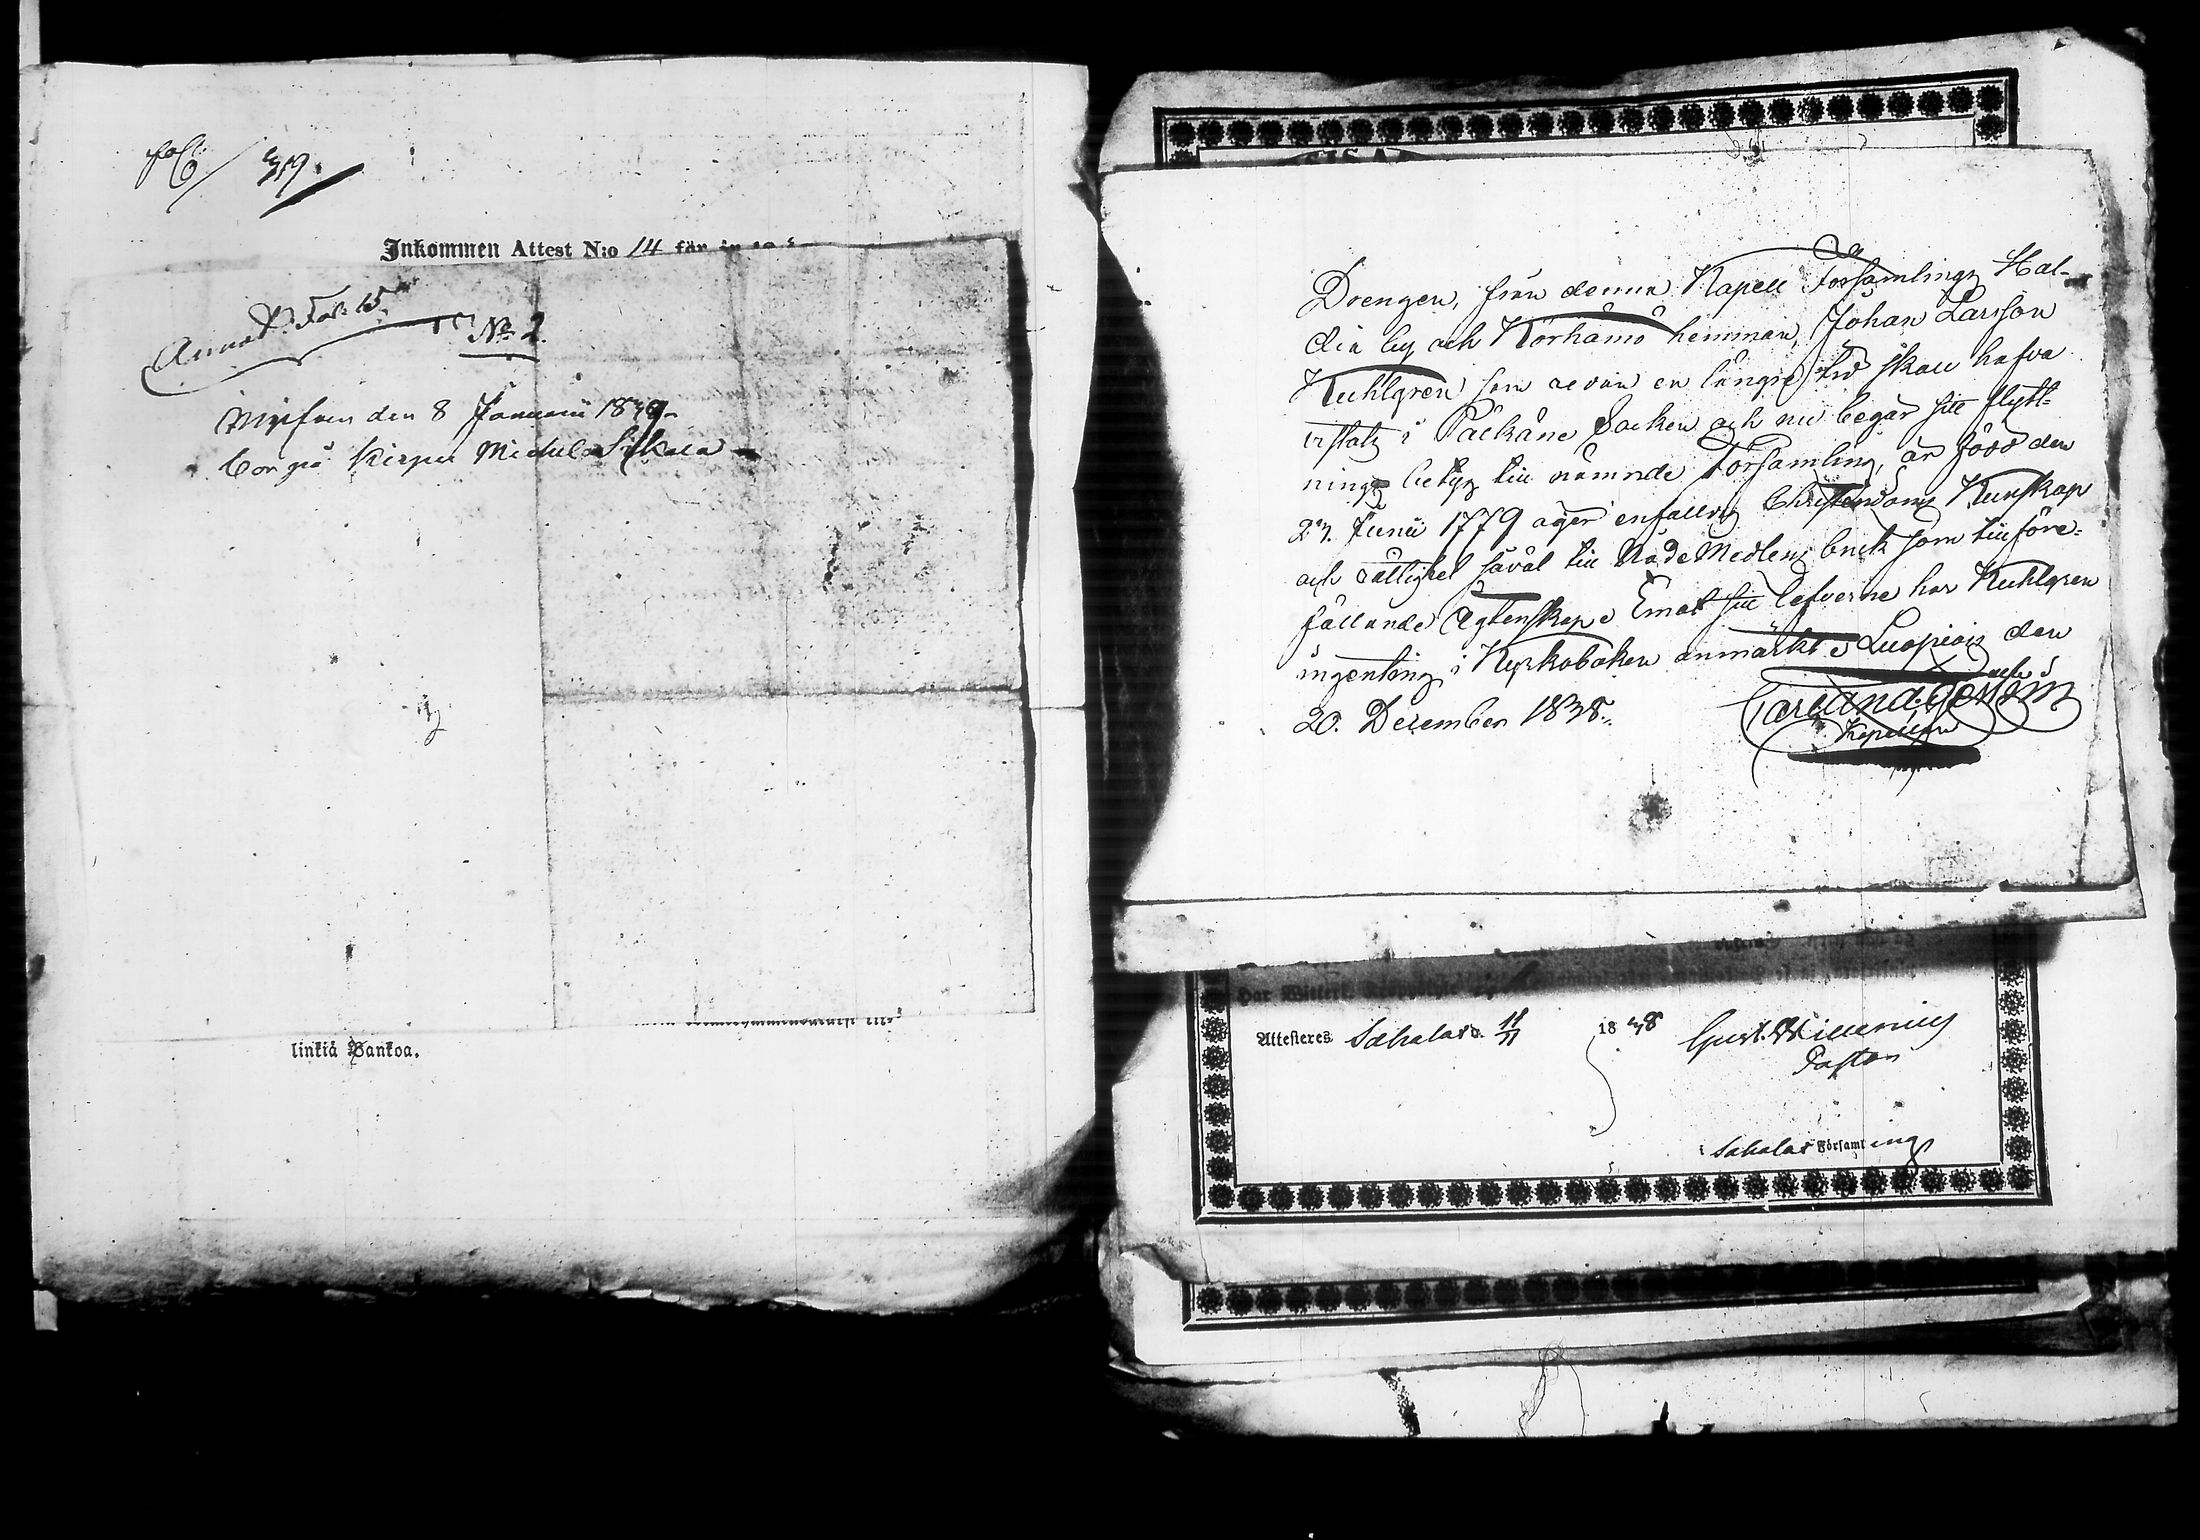 fol: 319.
Inkommen Attest N:o 14 för
Annot. Fol: 15.
No 2.
den 8 Januarii 1839.
Bor på Michel Sikala
linkiä Pankoa.
Drengen, från denna Kapell Församlings Hal-
dia by och Körhämö hemman, Johan Larsson
Kuhlgren som redan en längre tid skall hafva
vistats i Pälkäne Socken och nu begär sitt flytt-
nings betyg till nämnde Församling, är född den
23. Junii 1779 äger enfaldig Christendoms Kunskap
och rättighet såväl till NådeMedlens bruk som tillföre-
fallande Egtenskap. Emot sitt lefverne har Kuhlgren
ingenting i Kyrkoboken anmärkt. Luopiois den
20. December 1838.
Kapellan
Attesteras Sahalax d. 11/11 1838 Gust. Willenius
Pastor
i Sahalax Församling